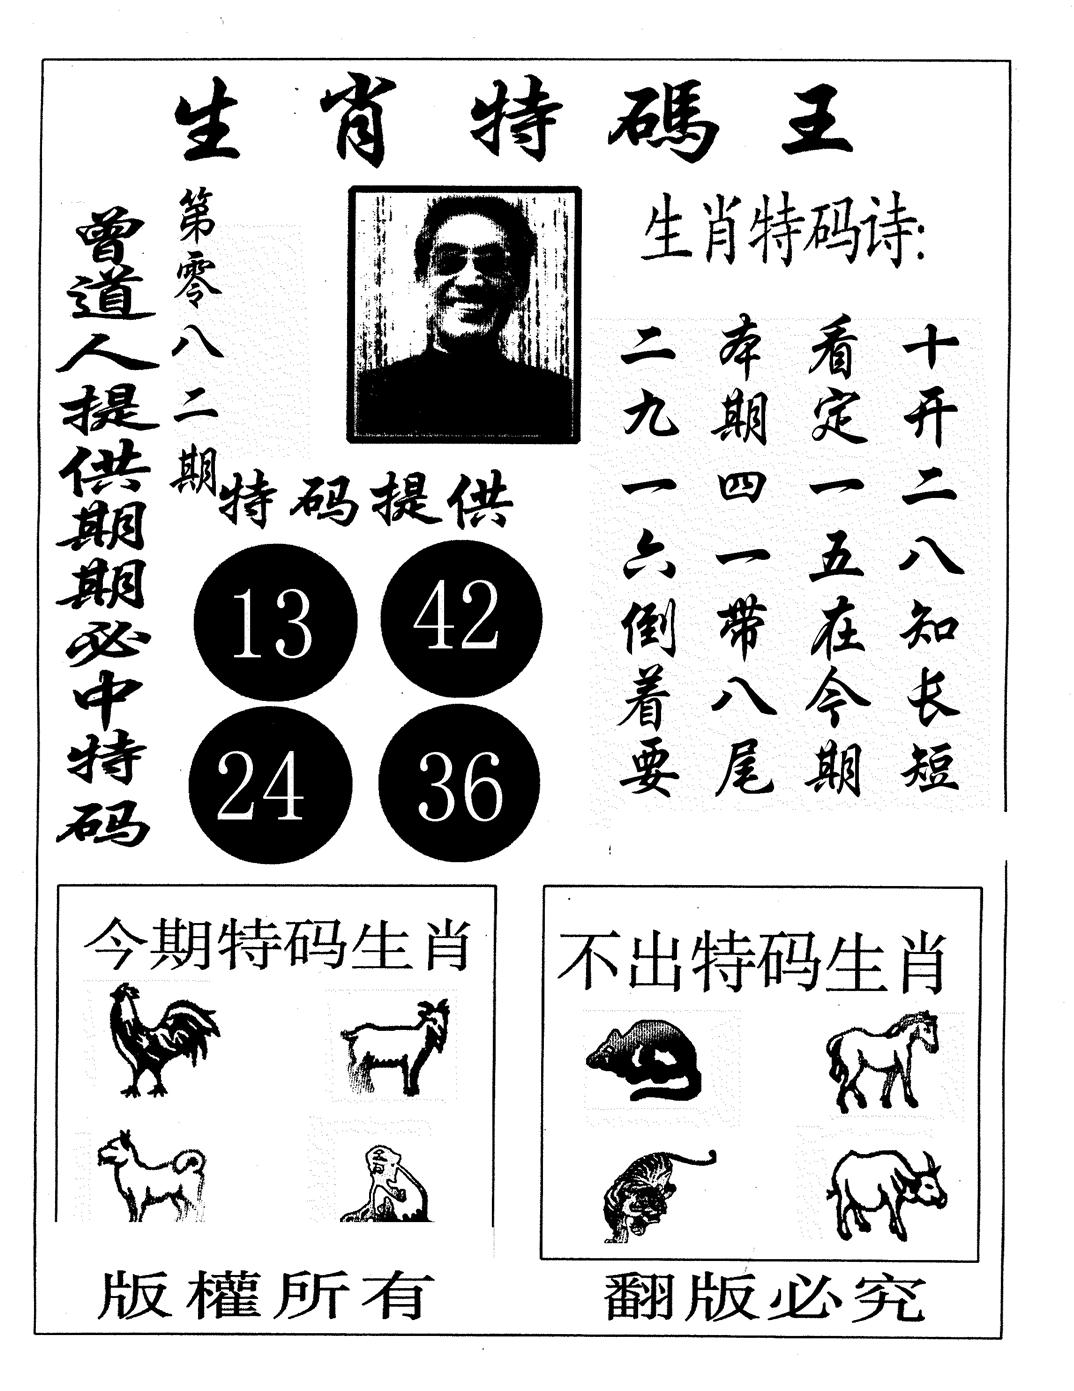 生肖特碼王
曾道人提供期期必中特码
第零八二期
特码提供
13 42
24 36
生肖特码诗:
二九一六倒着要
本期四一带八尾
看定一五在今期
十开二八知长短
今期特码生肖
不出特码生肖
版權所有
翻版必究